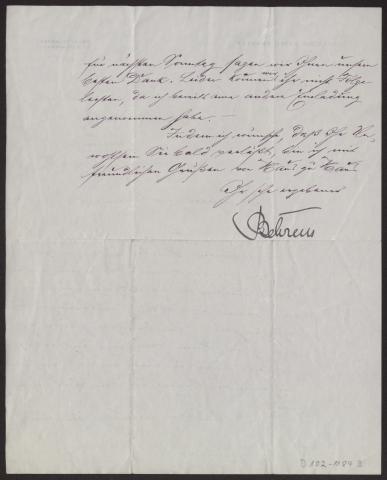 für nächsten Sonntag sagen wir Ihnen unsern
besten Dank. Leider können wir ihr nicht Folge
leisten, da ich bereits eine andere Einladung
angenommen habe. —
Indem ich wünsche, daß Ihr
Sie bald verläßt, bin ich mit
freundlichen Grüßen von Haus zu Haus
Ihr sehr ergebener
Behrens
D 102-1184 B